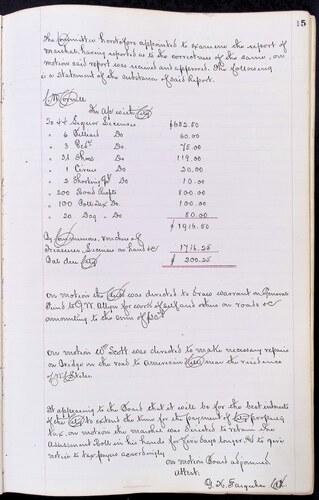 15
The Committee heretofore appointed to examine the report of
Marshal, having reported as to the correctness of the same, on
motion said report was received and approved. The following
is a statement of the substance of said Report.
In Acc with City
To 44 Liquor Licenses $682.50
" 6 Billiard Do 60.00
" 3 Do 75.00
" 21 Show Do 119.00
" 1 Circus Do 20.00
" 2 Shooting Do 10.00
" 200 Road Do 800.00
" 100 Poll Tax Do 100.00
" 20 Dog " Do 80.00
$1916.50
By Commissions, vouchers of
Treasurer, Licenses on hand &c 1716.25
Bal due City $200.25
On motion the Clerk was directed to draw warrant on General
Fund to G.W. for work of self and others on roads &c
amounting to the sum of
On motion Wm Scott was directed to make necessary repairs
on Bridge on the road to American near the residence
of
It appearing to the Board that it will be for the best interests
of the City to extend the time for the payment of City property
tax, on motion the marshal was directed to return the
Assessment Roll in his hands for five days longer & to give
notice to tax payers accordingly.
On motion Board adjourned
Attest.
G. K. Farquhar Clk